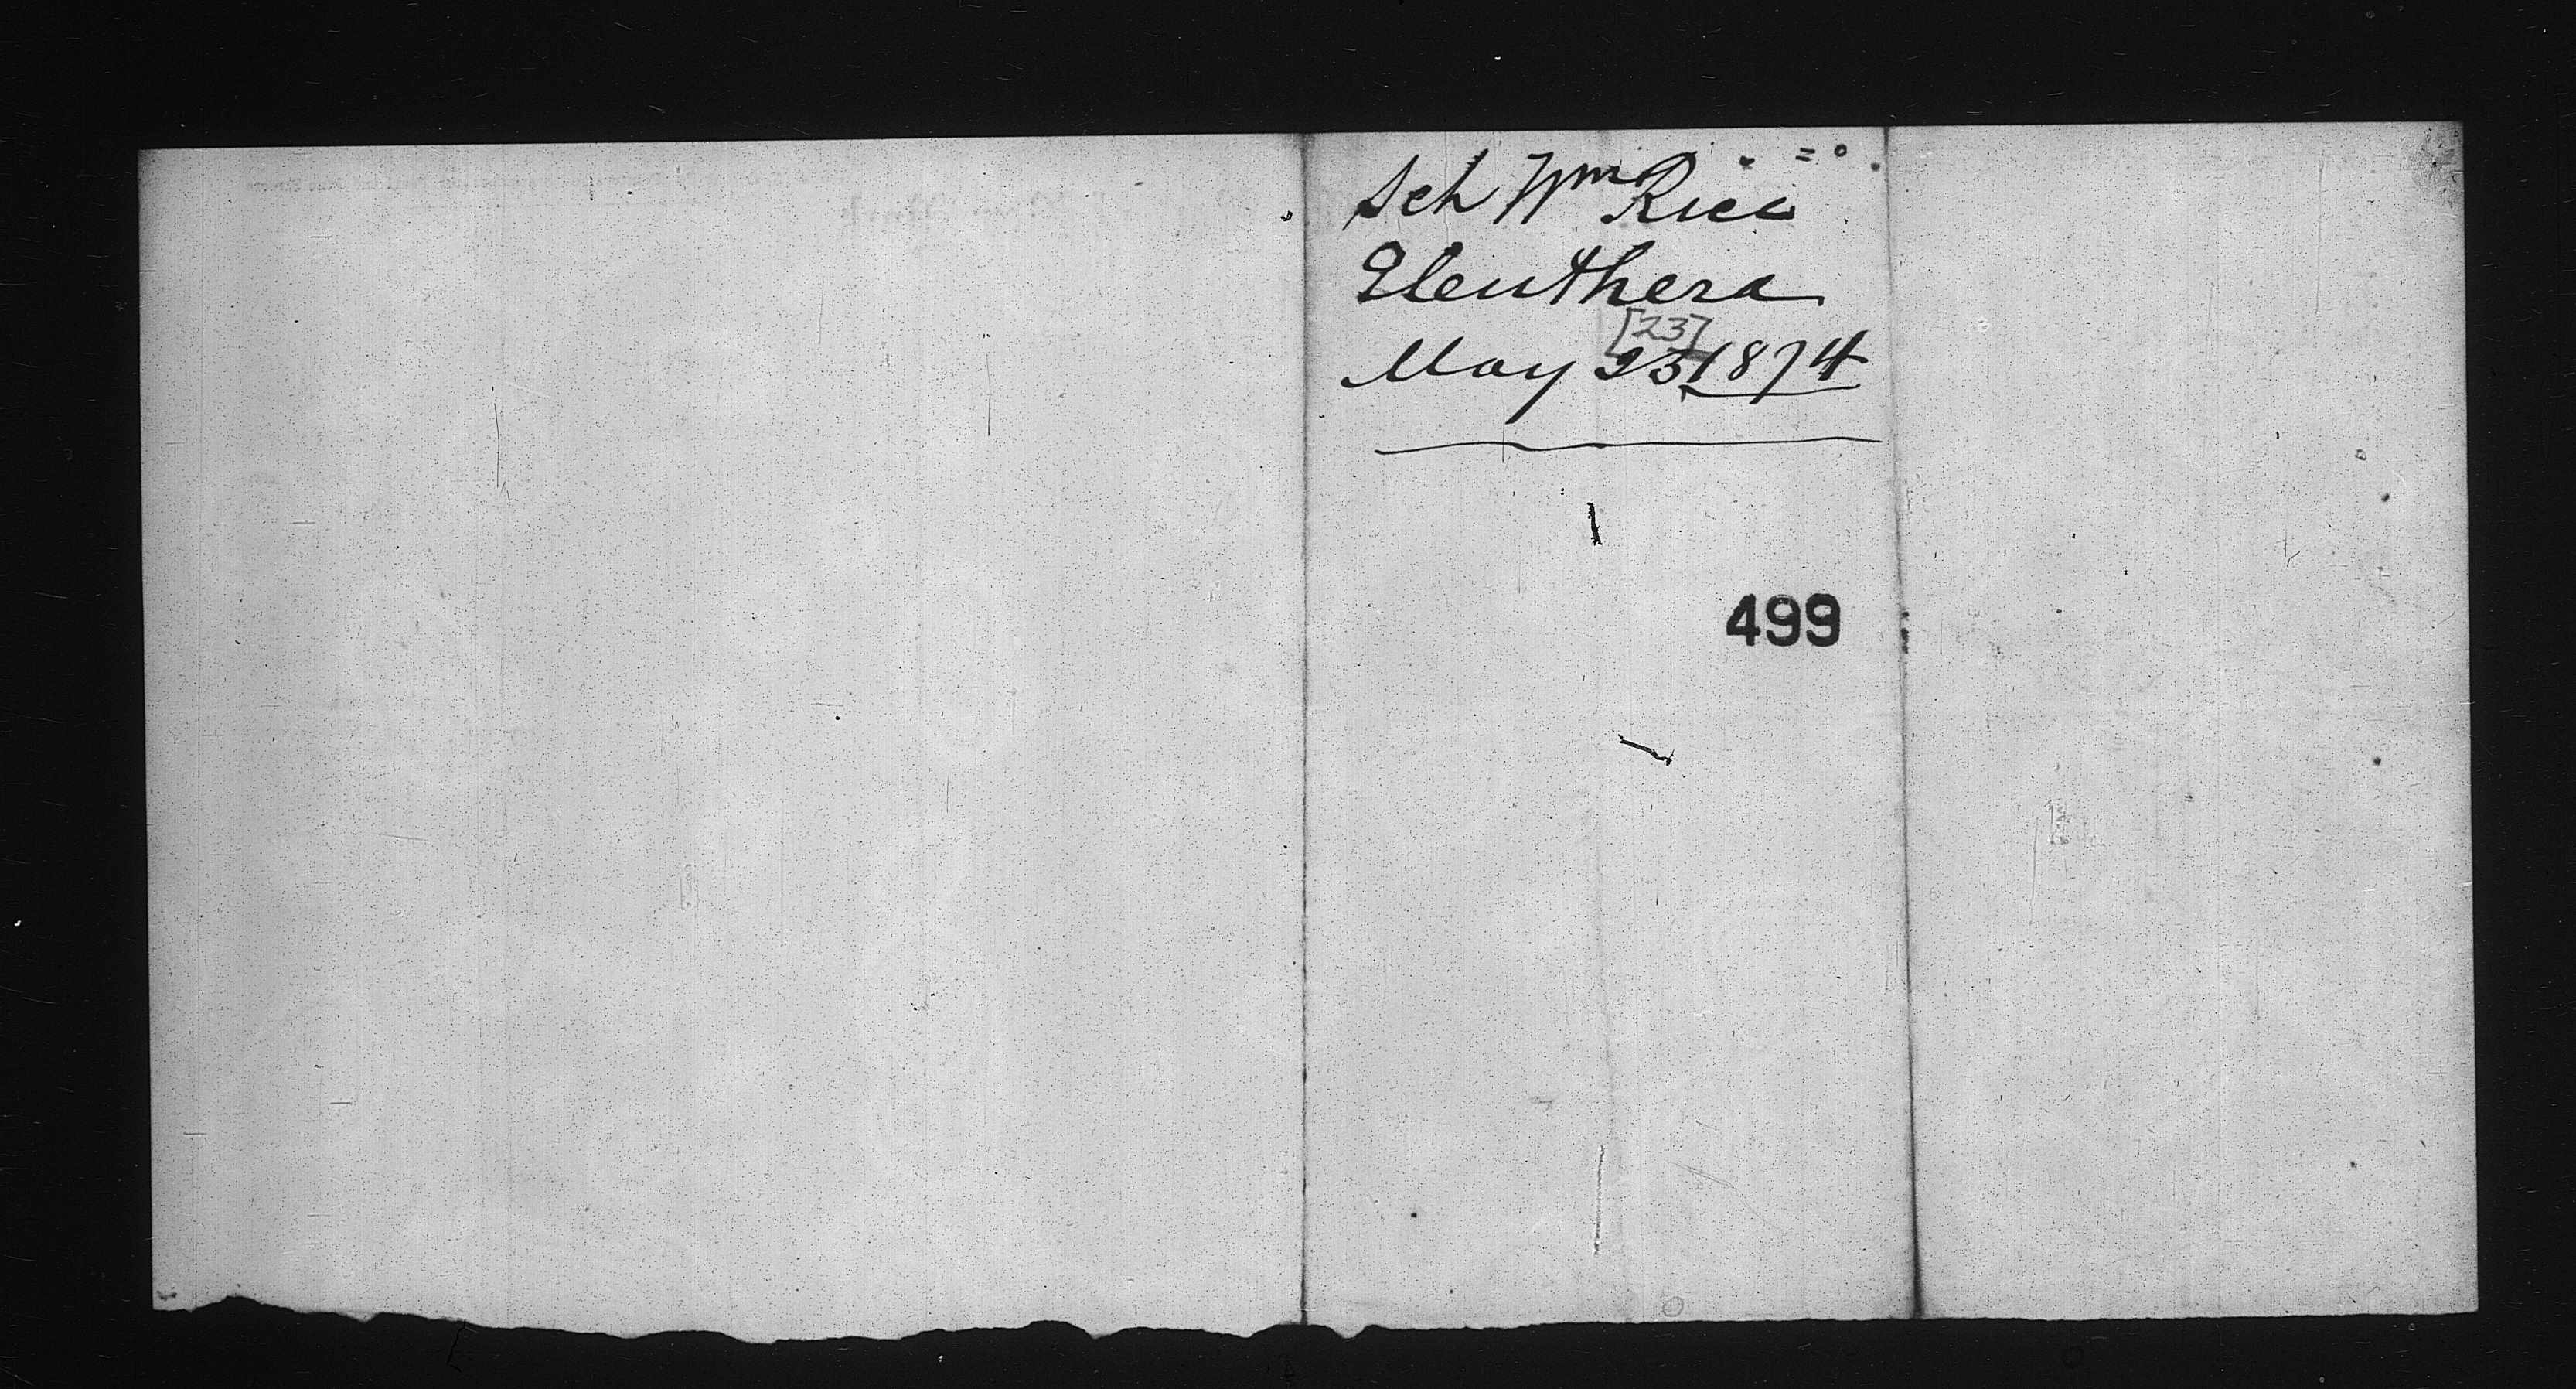 Sch Wm Rice
Eleuthera
[23]
May 23 1874
499